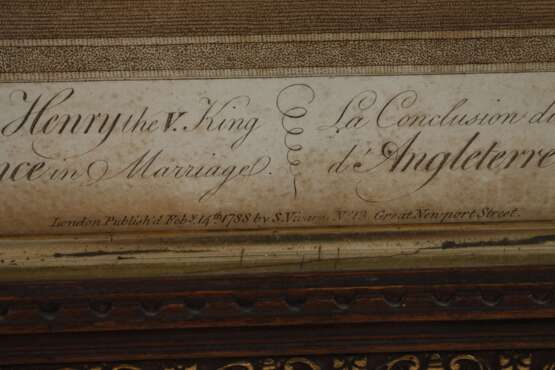 Henry the V. King
nce in Marriage.
La Conclusion du
d'Angleterre
London Publish'd Feby. 14th 1788 by S. Vivares No. 13 Great Newport Street.